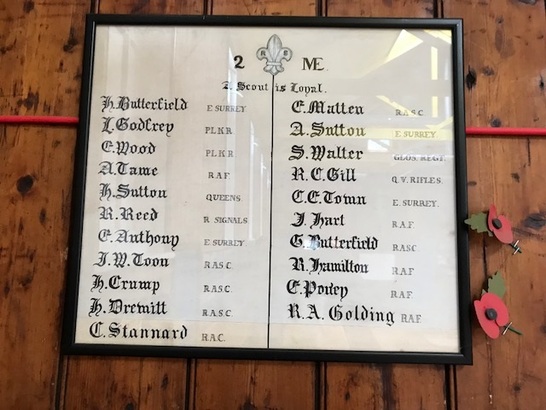 2 ME.
A Scout is Loyal.
H. Butterfield E SURREY.
L. Godfrey P.L.K.R.
E. Wood P.L.K.R.
A. Tame R.A.F.
H. Sutton QUEENS.
R. Reed R. SIGNALS
E. Anthony E SURREY
J. W. Toon R.A.S.C.
H. Crump R.A.S.C.
H. Drewitt R.A.S.C.
C. Stannard R.A.C.
E. Matten R.A.S.C.
A. Sutton E SURREY.
S. Walter GLOS. REGT.
R. C. Gill Q.V. RIFLES.
C. E. Town E. SURREY.
J. Hart R.A.F.
G. Butterfield RASC
R. Hamilton R.A.F
E. R.A.F.
R. A. Golding R.A.F.